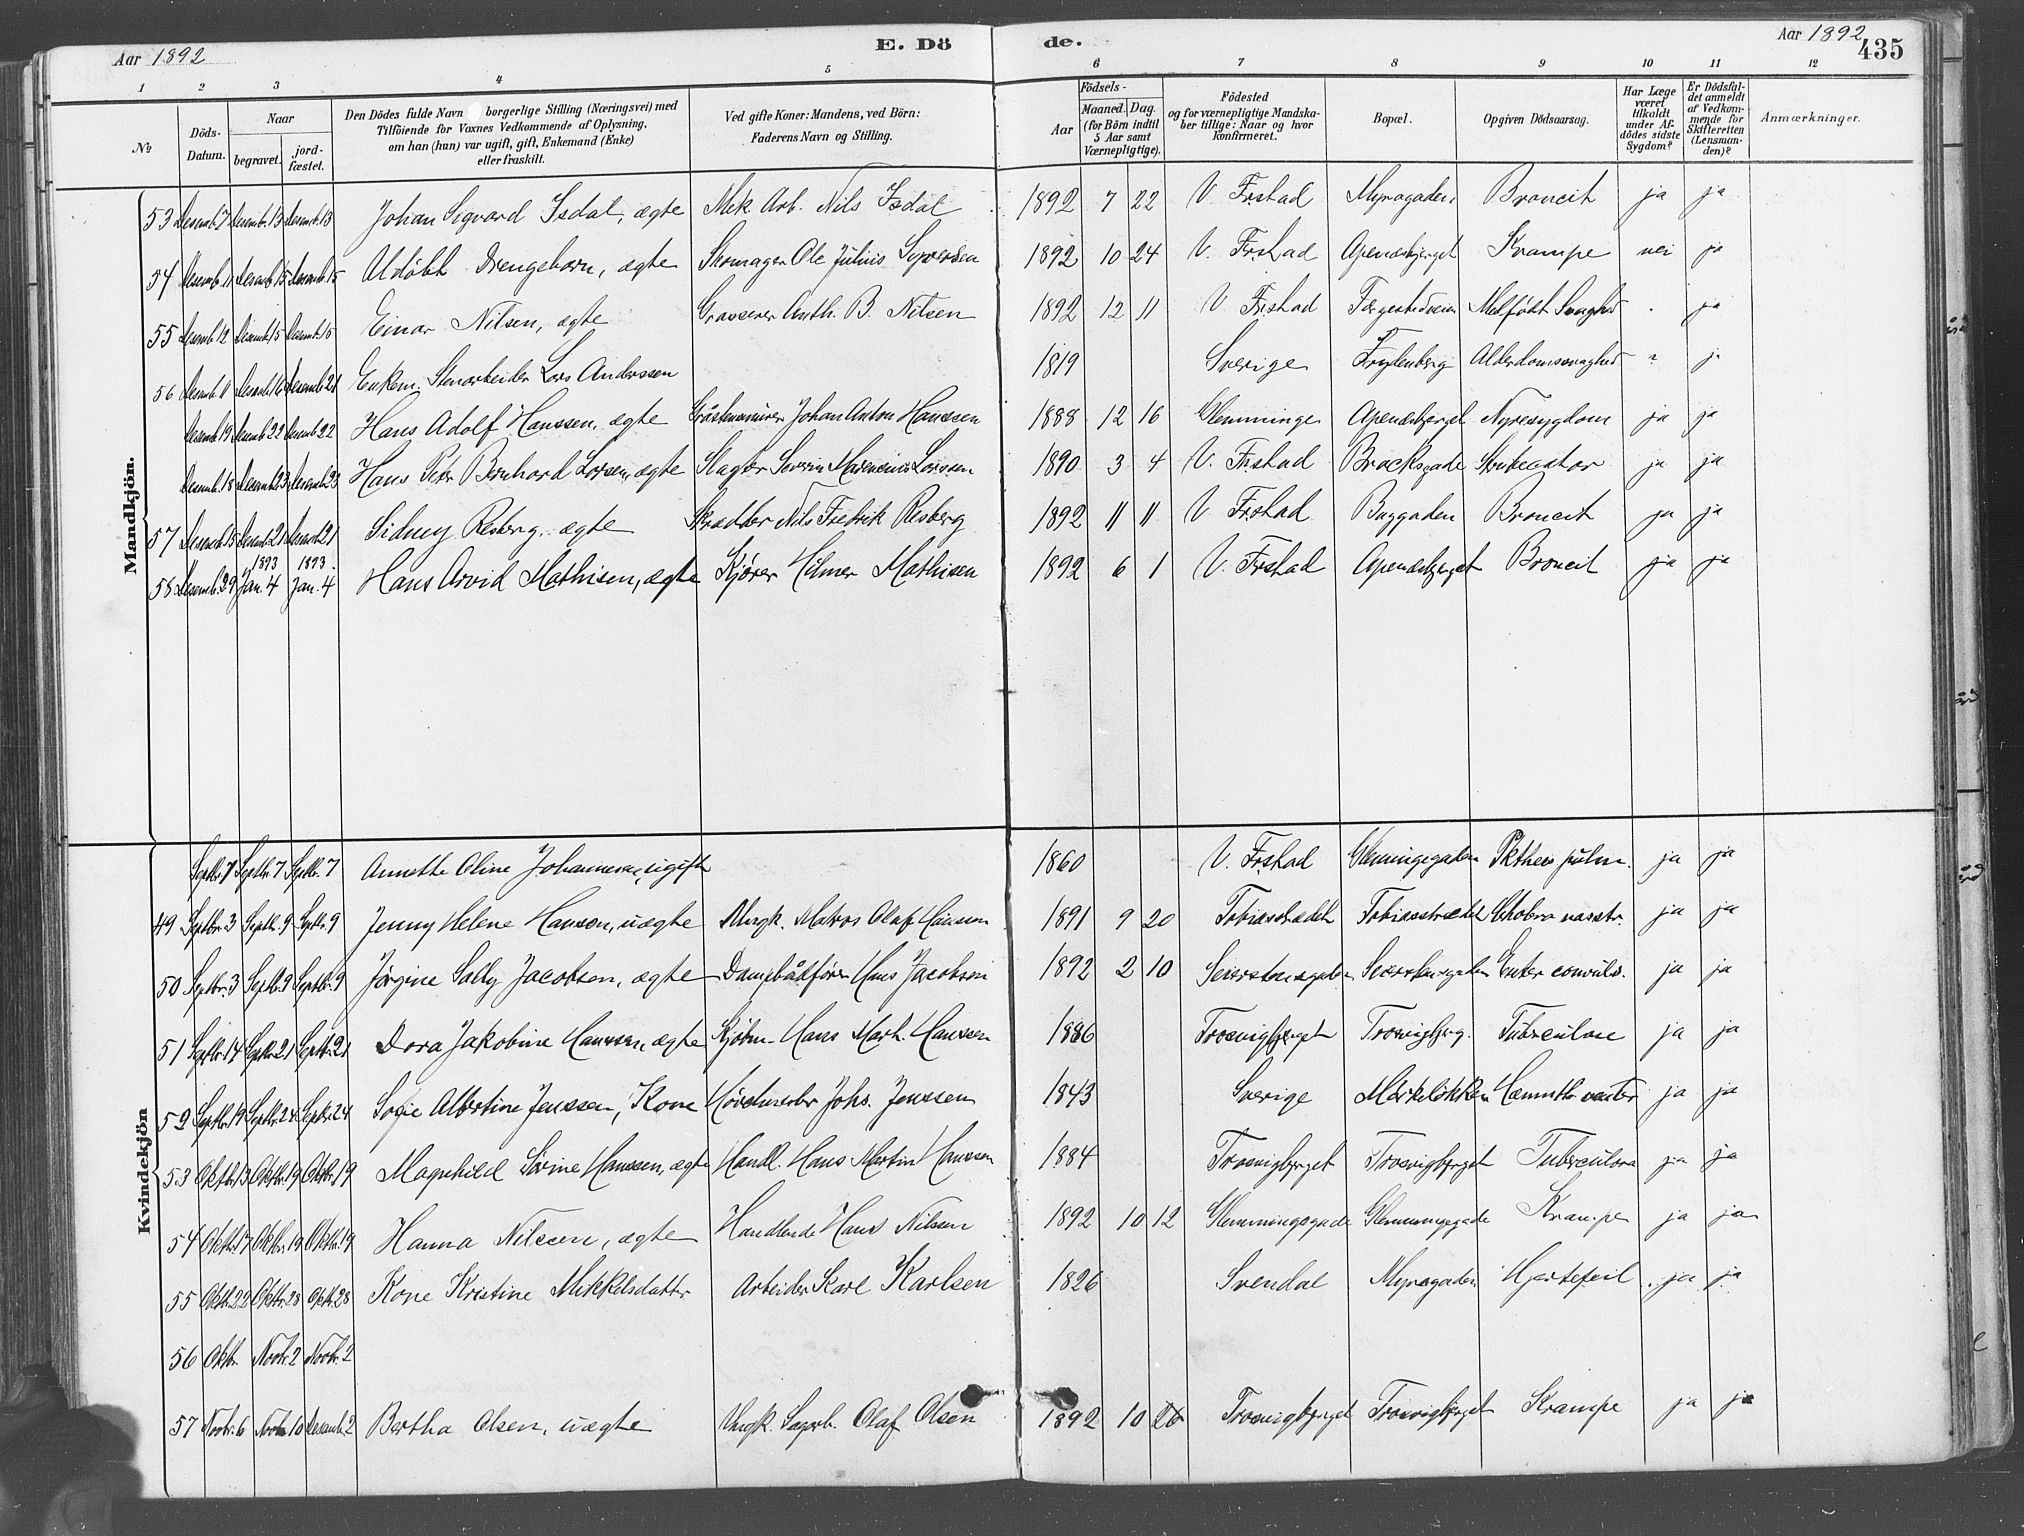 Aar 1892
E. Dö
de.
Aar 1892
435
1 2 3 4 5 6 7 8 9 10 11 12
No
Döds-Datum.
Naar
begravet.
jord-fæstet.
Den Dödes fulde Navn borgerlige Stilling (Næringsvei) med
Tilföiende for Voxnes Vedkommende af Oplysning,
om han (hun) var ugift, gift, Enkemand (Enke)
eller fraskilt.
Ved gifte Koner: Mandens, ved Börn:
Faderens Navn og Stilling.
Födsels-
Aar
Maaned. Dag.
(for Börn indtil
5 Aar samt
Værnepligtige).
Födested
og for værnepligtige Mandska-
ber tillige: Naar og hvor
konfirmeret.
Bopæl.
Opgiven Dödsaarsag.
Har Læge
været
tilkaldt
under Af-
dödes sidste
Sygdom?
Er Dödsfal-
det anmeldt
af Vedkom-
mende for
Skifteretten
(Lensman-
den)?
Anmærkninger.
Mandkjön.
53 Desemb. 7 Desemb. 13 Desemb. 13 Johan Sigvard Isdal, ægte Mek. Arb. Nils Isdal 1892 7 22 V. Frstad Myragaden Broncit ja ja
54 Desemb. 11 Desemb. 15 Desemb. 15 Udöbt Drengebarn, ægte Skomager Ole Julius Syversen 1892 10 24 V. Frstad Apenæsbjerget Krampe nei ja
55 Desemb. 12 Desemb. 15 Desemb. 15 Einar Nilsen, ægte Grosserer Anth. B. Nilsen 1892 12 11 V. Frstad Medfödt Svaghed ja
56 Desemb. 11 Desemb. 16 Desemb. 21 Enkem. Stenarbeider Lars Anderssen 1819 Sverige Frydenberg Alderdomssvaghed ? j
Desemb. 19 Desemb. 22 Desemb. 22 Hans Adolf Hanssen, ægte Gråstensmurer Johan Anton Hanssen 1888 12 16 Glemminge Apenæsbjerget Nyresygdom ja ja
Desemb. 18 Desemb. 23 Desemb. 23 Hans Peter Bernhard Larsen, ægte Slagter Severin Larssen 1890 3 4 V. Frstad Brocksgade ja ja
57 Desemb. 15 Desemb. 21 Desemb. 21 Sidney Resberg, ægte Skrædder Nils Fredrik Resberg 1892 11 11 V. Frstad Baggaden Broncit ja ja
1893 1893
58 Desemb. 29 Jan. 4 Jan. 4 Hans Arvid Mathisen, ægte Kjörer Hilmer Mathisen 1892 6 1 V. Frstad Apenæsbjerget Broncit ja ja
Kvindekjön
Septbr. 7 Septbr. 7 Annette Oline Johannesen, ugift 1860 V. Frstad Glemmingegaden Pktheis pulm. ja ja
49 Septbr. 3 Septbr. 9 Septbr. 9 Jenny Helene Hansen, uægte Ungk. Matros Olaf Hansen 1891 9 20 Tobiasstrædet Tobiasstrædet ja ja
50 Septbr. 3 Septbr. 9 Septbr. 9 Jörgine Sally Jacobsen, ægte Dampbådförer Hans Jacobsen 1892 2 10 Seierstensgaden Seierstensgaden Enter convuls. ja ja
51 Septbr. 14 Septbr. 21 Septbr. 21 Dora Jakobine Hanssen, ægte Kjöbm. Hans Mart. Hanssen 1886 Trosvigbjerget Trosvigbjerg. Tuberculose ja ja
52 Septbr. 19 Septbr. 24 Septbr. 24 Sofie Albertine Jenssen, Kone Johs. Jenssen 1843 Sverige ja ja
53 Oktbr. 13 Oktbr. 19 Oktbr. 19 Magnhild Sörine Hanssen, ægte Handl. Hans Martin Hanssen 1884 Trosvigbjerget Trosvigbjerget Tuberculose ja ja
54 Oktbr. 17 Oktbr. 19 Oktbr. 19 Hanna Nilssen, ægte Handlende Hans Nilssen 1892 10 12 Glemmingegade Glemmingegade Krampe ja ja
55 Oktbr. 22 Oktbr. 28 Oktbr. 28 Kone Kristine Mikkelsdatter Arbeider Karl Karlsen 1826 Svendal Myragaden Hjertefeil ja ja
56 Oktbr. Novbr. 2 Novbr. 2
57 Novbr. 6 Novbr. 10 Desemb. 2 Bertha Olsen, uægte Ungk. Sagarb. Olaf Olsen 1892 10 26 Trosvigbjerget Trosvigbjerget Krampe ja ja